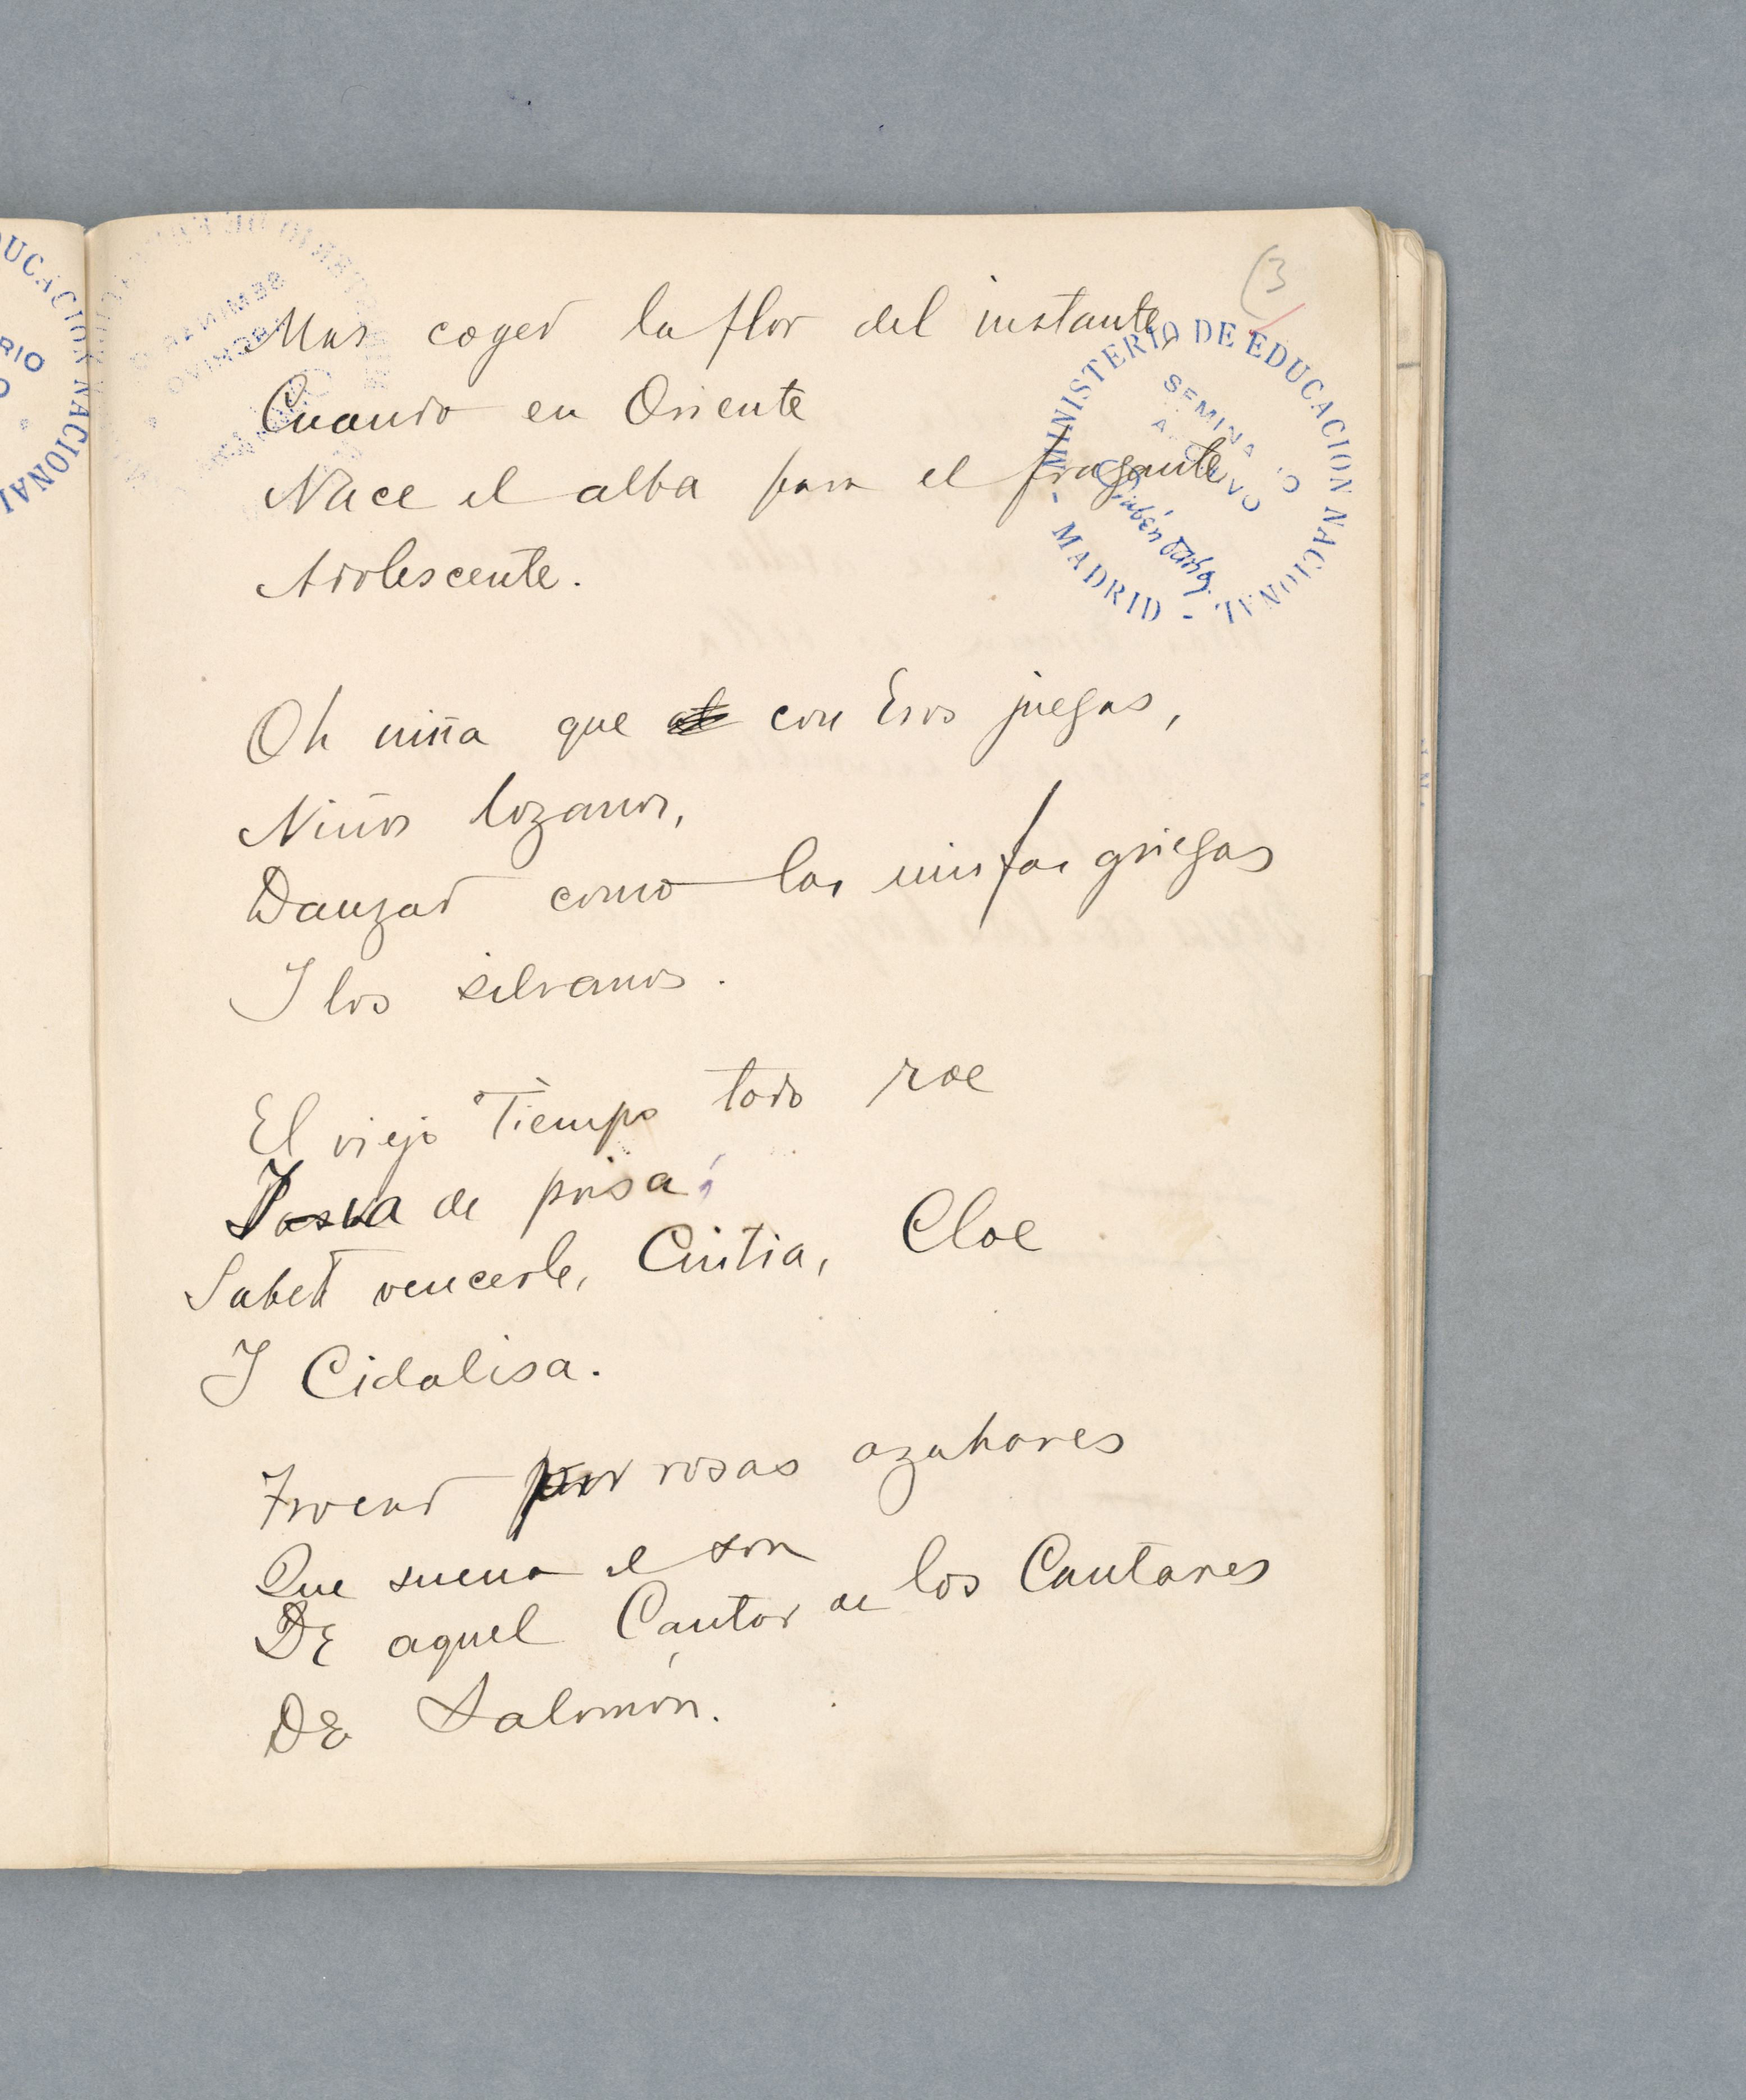 (3
Mas coged la flor del instante,
Cuando en Oriente
Nace el alba para el fragante
Adolescente.
Oh niña que con Eros juegas,
Niños lozanos,
Danzad como las ninfas griegas
Y los silvanos.
El viejo Tiempo todo roe
Y va de prisa;
Sabed vencerle, Cintia, Cloe
Y Cidalisa.
Trocad por rosas azahares
Que suena el son
De aquel Cantar de los Cantares
De Salomón.
MINISTERIO DE EDUCACION NACIONAL - MADRID -
SEMINARIO
ARCHIVO
Rubén Darío
EDUCACION NACIONAL
RIO
O